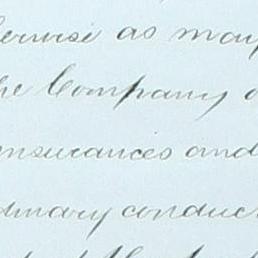 erwise as may
he Company
nsurances and
dinary conduc